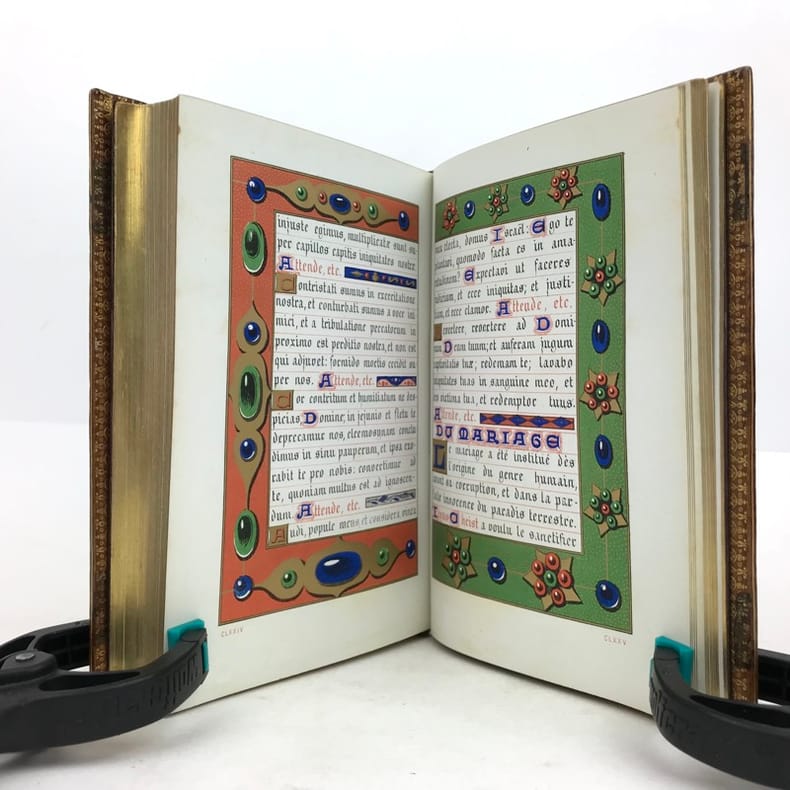 injuste egimus, multiplicate sunt su-
per capillos capitis iniquitates nostre.
Attende, etc.
Contristati sumus in exercitatione
nostra, et conturbati sumus a voce ini-
mici, et a tribulatione peccatorum in
proximo est perditio nostra, et non est
qui adjuvet: formido mortis cecidit su-
per nos. Attende, etc.
Cor contritum et humiliatum ne des-
picias, Domine; in jejunio et fletu te
deprecamur nos, eleemosynam conclu-
dimus in sinu pauperum, et ipsa exo-
rabit te pro nobis: convertimur ad
te, quoniam multus est ad ignoscen-
dum. Attende, etc.
Audi, popule meus et considera vinea
CLXXIV
mea electa, domus Israël: Ego te
plantavi, quomodo facta es in ama-
ritudinem? Expectavi ut faceres
judicium, et ecce iniquitas; et justi-
tiam, et ecce clamor. Attende, etc.
Revertere, revertere ad Domi-
num Deum tuum; et auferam jugum
captivitatis tuæ; redemam te; lavabo
iniquitates tuas in sanguine meo, et
ex victima tua, et redemptor tuus.
Attente, etc.
DU MARIAGE
Le mariage a été institué dès
l'origine du genre humain,
avant sa corruption, et dans la par-
faite innocence du paradis terrestre.
Jésus Christ a voulu le sanctifier
CLXXV